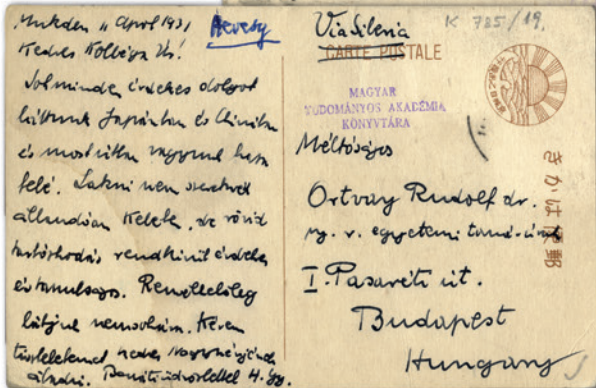 Mukden 11 April 1931
Hevesy
Kedves Kolléga Úr!
Sok minden érdekes dolgot
láttunk Japánban és Chinában
és most útban vagyunk haza
felé. Lakni nem szeretnék
állandóan Keleten, de rövid
tartózkodás rendkívül érdekes
és tanulságos. Remélhetőleg
látjuk nemsokára. Kérem
tiszteletemet kedves
átadni. Baráti üdvözlettel H. Gy.
Via Siberia
K 785/19.
CARTE POSTALE
MAGYAR
TUDOMÁNYOS AKADÉMIA
KÖNYVTÁRA
Méltóságos
Ortvay Rudolf dr.
ny. r. egyetemi tanár
I. Pasaréti út.
Budapest
Hungary
きかは便郵